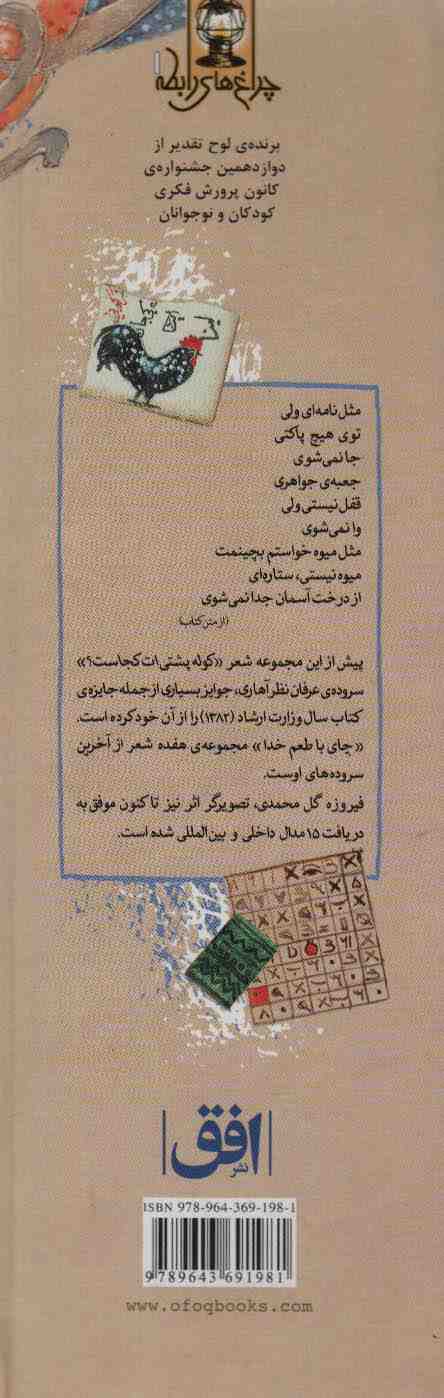 چراغ‌های رابطه
برنده‌ی لوح تقدیر از
دوازدهمین جشنواره‌ی
کانون پرورش فکری
کودکان و نوجوانان
مثل نامه‌ای ولی
توی هیچ پاکتی
جا نمی‌شوی
جعبه‌ی جواهری
قفل نیستی ولی
وا نمی‌شوی
مثل میوه خواستم بچینمت
میوه نیستی، ستاره‌ای
از درخت آسمان جدا نمی‌شوی
(از متن کتاب)
پیش از این مجموعه شعر «کوله پشتی‌ات کجاست؟»
سروده‌ی عرفان نظرآهاری، جوایز بسیاری از جمله جایزه‌ی
کتاب سال وزارت ارشاد (۱۳۸۲) را از آن خود کرده است.
«چای با طعم خدا» مجموعه‌ی هفده شعر از آخرین
سروده‌های اوست.
فیروزه گل محمدی، تصویرگر اثر نیز تا کنون موفق به
دریافت ۱۵ مدال داخلی و بین‌المللی شده است.
افق
نشر
ISBN 978-964-369-198-1
9789643691981
www.ofoqbooks.com